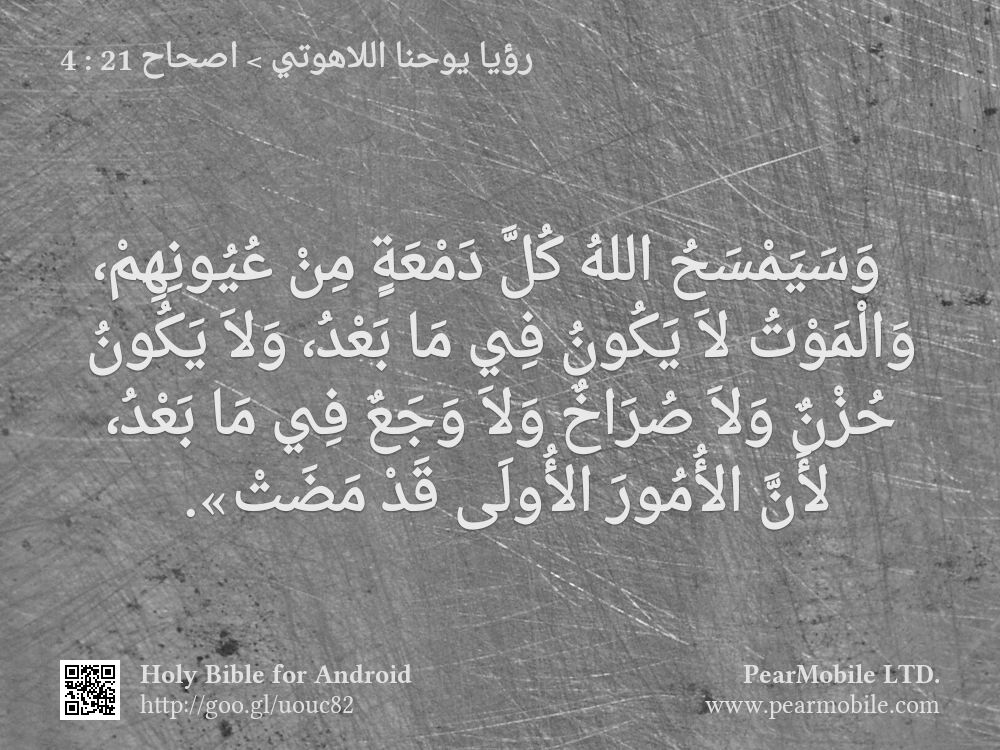 رؤيا يوحنا اللاهوتي > اصحاح 21 : 4
وَسَيَمْسَحُ اللهُ كُلَّ دَمْعَةٍ مِنْ عُيُونِهِمْ،
وَالْمَوْتُ لاَ يَكُونُ فِي مَا بَعْدُ، وَلاَ يَكُونُ
حُزْنٌ وَلاَ صُرَاخٌ وَلاَ وَجَعٌ فِي مَا بَعْدُ،
لأَنَّ الأُمُورَ الأُولَى قَدْ مَضَتْ».
Holy Bible for Android
http://goo.gl/uouc82
PearMobile LTD.
www.pearmobile.com